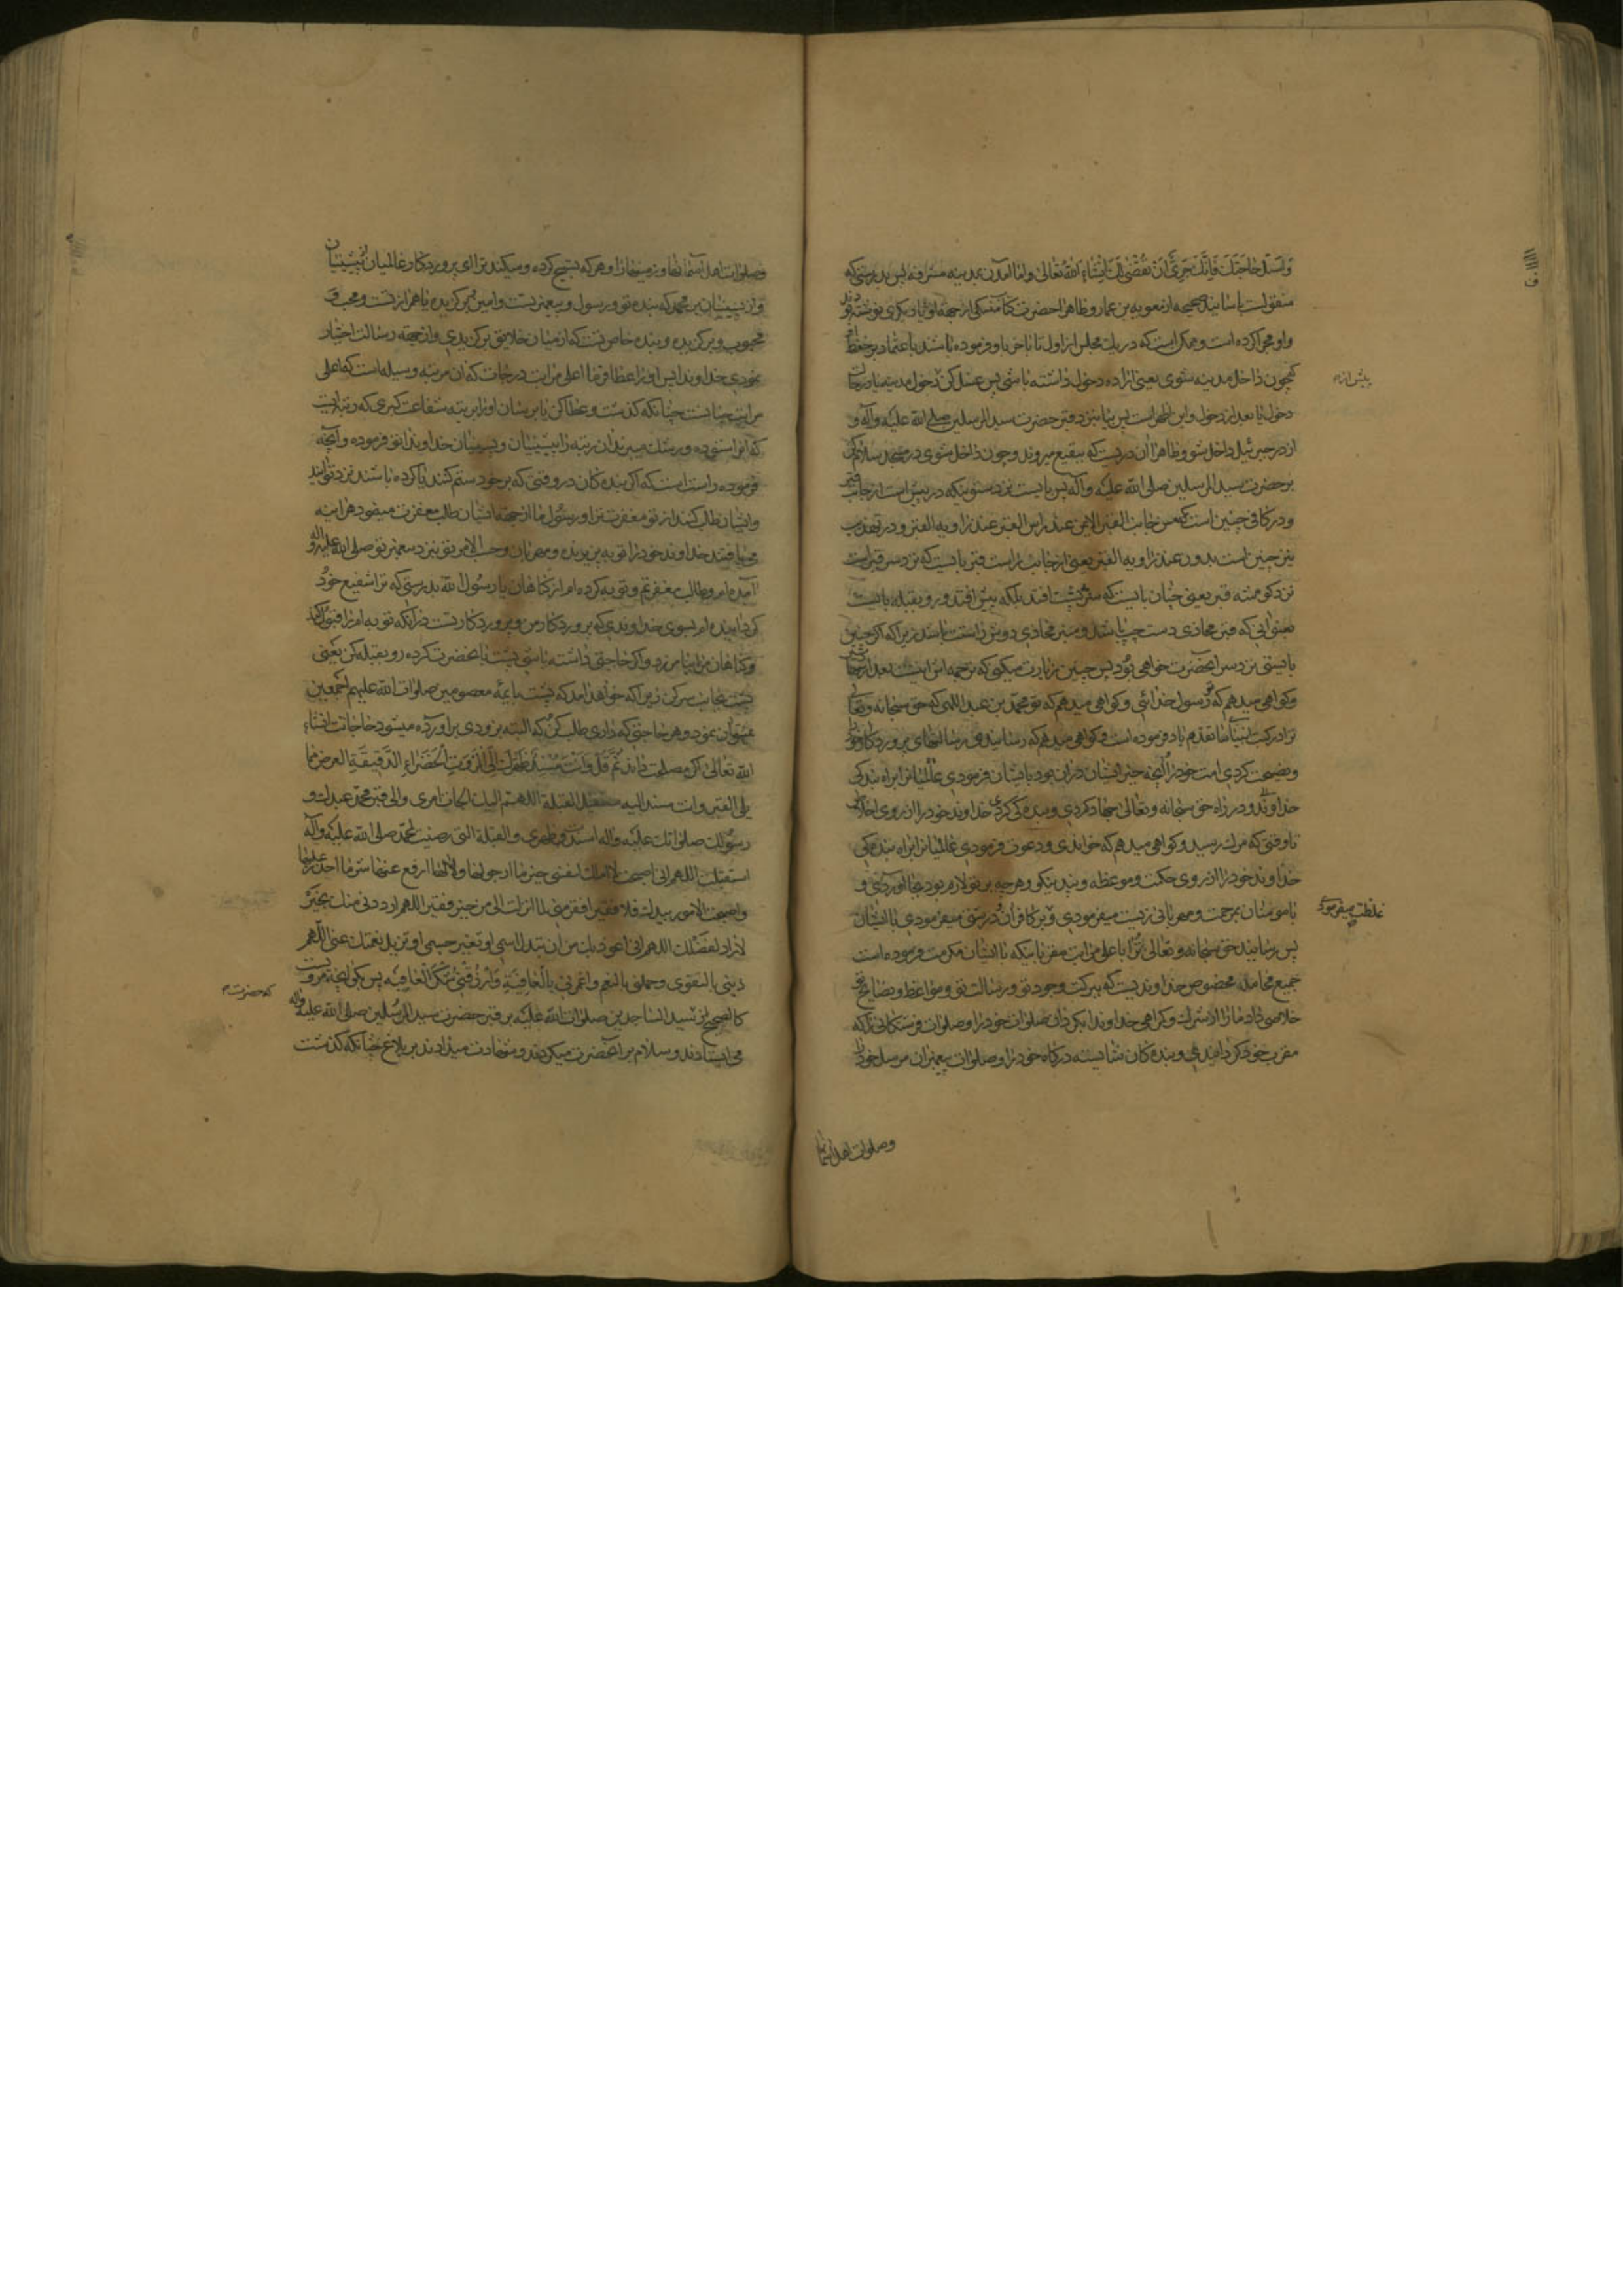 وَاسْئَلْ حَاجَتَكَ فَاِنَّكَ حَرِیٌّ اَنْ تُقْضٰی اِنْشَاءَ اللهُ تَعَالیٰ واما آمدن بمدینه مشرفه پس بدرستی که
منقولست باسانید صحیحه از معویه بن عمار وظاهرا حضرت
واو مجرا کرده است وممکن است که در یک مجلس از اول تا باخر باو فرموده باشند باعتماد بر حفظ او
که چون داخل مدینه شوی یعنی اراده دخول داشته باشی پس غسل کن دخول مدینه یا در حالت
پیش از
دخول یا بعد از دخول واین اظهر است پس بیا بنزد قبر حضرت سید المرسلین صلی الله علیه وآله و
از در جبرئیل داخل شو وظاهرا آن دریست که ببقیع میروند وچون داخل شوی در مسجد سلام کن
بر حضرت سید المرسلین صلی الله علیه وآله پس بایست نزد ستونیکه در پیش است از جانب قبر
ودر کافی چنین است که من جانب القبر الایمن عند راس القبر عند زاویه القبر ودر تهذیب
نیز چنین است بدون عند زاویه القبر یعنی از جانب راست قبر بایست که نزد سر قبر است
نزد گوشه قبر یعنی چنان بایست که سر پشت افتد بلکه پیش افتد ورو بقبله بایست
یعنی آنی که قبر محاذی دست چپ باشد ومنبر محاذی دوش راست باشد زیرا که اگر چنین
بایستی نزد سر آنحضرت خواهی بود پس چنین زیارت میکنی که ترجمه اش اینست بعد از
وگواهی میدهم که تو رسول خدائی وگواهی میدهم که تو محمد بن عبد اللهی که حق سبحانه وتعالی
ترا در کتب انبیاء ما تقدم یاد فرموده است وگواهی میدهم که رسانیدی رسالتهای پروردگار خود را
ونصیحت کردی امت خود را آنچه خیر ایشان در آن بود بایشان فرمودی عالمیانرا براه بندگی
خداوند ودر راه حق سبحانه وتعالی جهاد کردی وبندگی کردی خداوند خود را از روی اخلاص
تا وقتی که مرگ رسید وگواهی میدهم که خواندی ودعوت فرمودی عالمیانرا براه بندگی
خداوند خود را از روی حکمت وموعظه وپند نیکو وهر چه بر تو لازم بود بجا آوردی و
با مومنان بمرحمت ومهربانی زیست میفرمودی وبر کافران درشتی میفرمودی با ایشان
غلظت میفرمودی
پس رسانید حق سبحانه وتعالی ترا باعلی مراتب مقربانیکه با ایشان مکرمت فرموده است
جمیع محامد مخصوص خداوندیست که ببرکت وجود تو ورسالت تو ومواعظ ونصایح تو
خلاصی داد ما را از شرک وگمراهی خداوندا بگردان صلوات خود را وصلوات فرشتگانی را که
مقرب خود گردانیدی وبنده گان شایسته درگاه خود را وصلوات پیغمبران مرسل خود را
وصلوات اهل آسمانها
وصلوات اهل آسمانها وزمینها را وهر که تسبیح کرده ومیکند ترا ای پروردگار عالمیان از پیشینیان
واز پسینیان بر محمد که بنده تو ورسول وپیغمبر تست وامین وبرگزیده
محبوب وبرگزیده وبنده خاص تست که از میان خلایق برگزیدی واز جهه رسالت اختیار
نمودی خداوندا پس او را عطا فرما اعلی مراتب درجات که آن مرتبه وسیله است که اعلی
مراتب جنانست چنانکه گذشت وعطا کن یا برسان او را بمرتبه شفاعت کبری که
که ورشک میبرند آن رتبه را پیشینیان وپسینیان خداوندا تو فرموده وآنچه
فرموده راست است که اگر بنده گان در وقتی که بر خود ستم کنند یا کرده باشند نزد تو آیند
وایشان طلب کنند از تو مغفرت ترا ورسول ما از جهه ایشان طلب مغفرت میفرمود هر آینه
می یافتند خداوند خود را توبه پذیرنده ومهربان وحسب الامر تو بنزد پیغمبر تو صلی الله علیه وآله
آمده ام وطالب مغفرتم وتوبه کرده ام از گناهان یا رسول الله بدرستی که ترا شفیع خود
گردانیده ام بسوی خداوندی که پروردگار من وپروردگار تست در آنکه توبه ام را قبول کند
وگناهان مرا بیامرزد واگر حاجتی داشته باشی پشت بانحضرت کرده رو بقبله کن یعنی
پشت بجانب سر کن زیرا که خواهد آمد که پشت بائمه معصومین صلوات الله علیهم اجمعین
نمیتوان نمود وهر حاجتی که داری طلب کن که البته بزودی برآورده میشود حاجات انشاء
الله تعالی اگر مصلحت داند ثُمَّ قُلْ وَاَنْتَ مُسْنِدٌ ظَهْرَكَ اِلَی الْمَرْوَةِ الْخَضْرَاءِ الدَّقِیقَةِ العرض مما
یلی القبر وانت مسند الیه مستقبل القبلة اللهم الیك الجات امری والی قبر محمد عبدك و
رسولك صلواتك علیه وآله اسندت ظهری والقبلة التی رضیت لمحمد صلی الله علیه وآله
استقبلت اللهم انی اصبحت لا املك لنفسی خیر ما ارجو لها ولا ادفع عنها شر ما احذر علیها
واصبحت الامور بیدك فلا فقیر افقر منی انی لما انزلت الی من خیر فقیر اللهم ارددنی منك بخیر
لا راد لفضلك اللهم انی اعوذ بك من ان تبدل اسمی او تغیر جسمی او تزیل نعمتك عنی اللهم
زینی بالتقوی وجملنی بالنعم واعمرنی بِالْعَافِیَةِ وَارْزُقْنِی شُكْرَ الْعَافِیَه پس بگو آنچه مرویست
کالصحیح از سید الساجدین صلوات الله علیه بر قبر حضرت سید المرسلین صلی الله علیه وآله
که حضرت
می ایستادند وسلام بر آنحضرت میکردند وشهادت میدادند بر بلاغ چنانکه گذشت